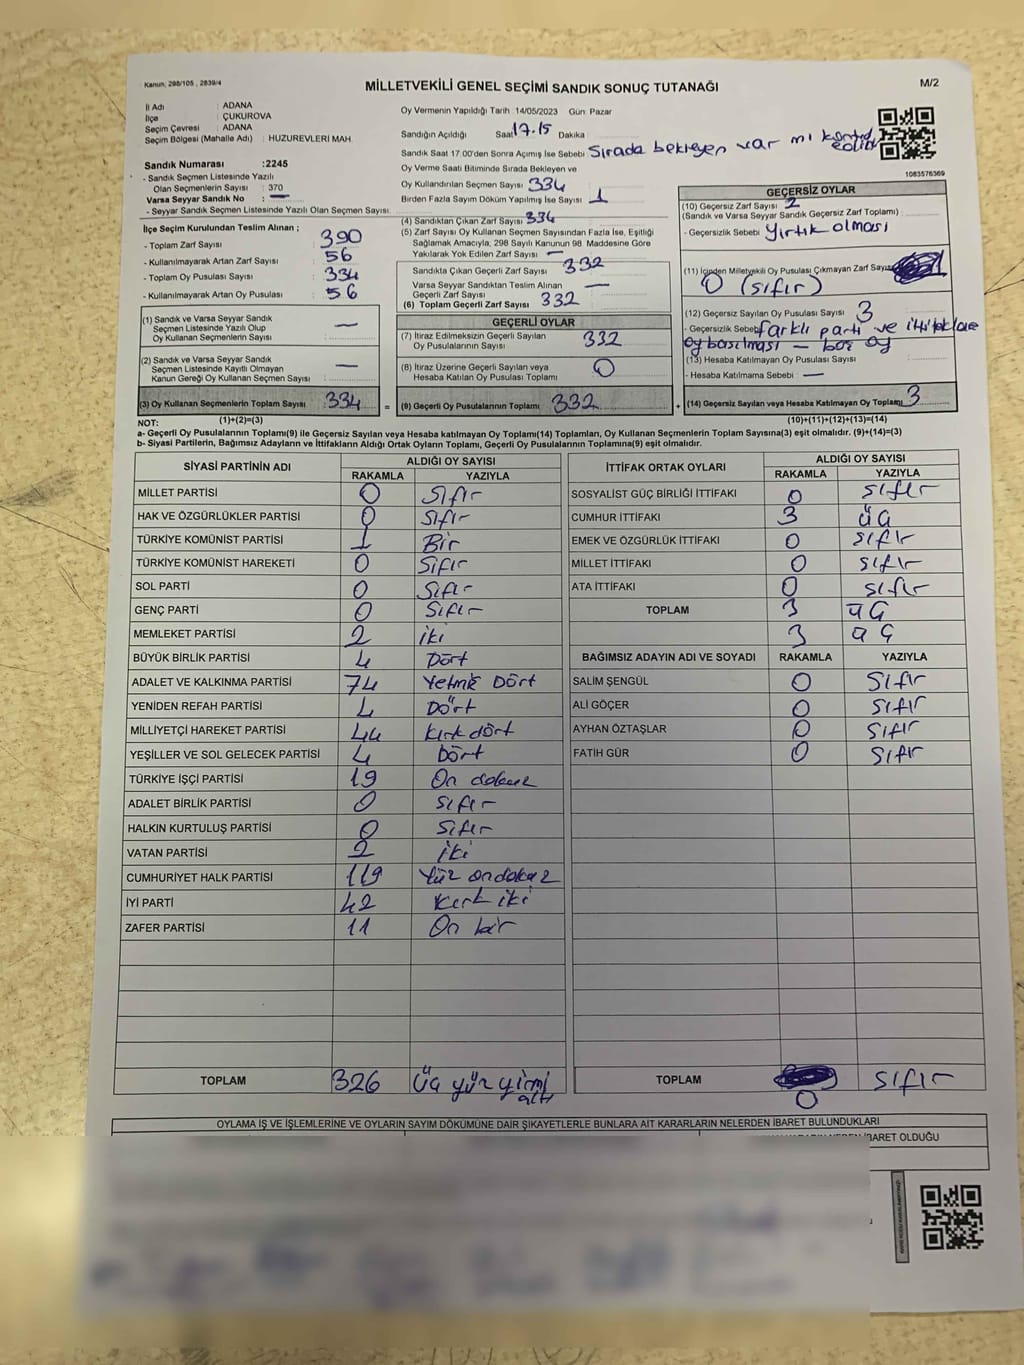 Kanun: 298/105 , 2839/4
MİLLETVEKİLİ GENEL SEÇİMİ SANDIK SONUÇ TUTANAĞI
M/2
İl Adı : ADANA
İlçe : ÇUKUROVA
Seçim Çevresi : ADANA
Seçim Bölgesi (Mahalle Adı) : HUZUREVLERİ MAH.
Sandık Numarası :2245
- Sandık Seçmen Listesinde Yazılı
Olan Seçmenlerin Sayısı : 370
Varsa Seyyar Sandık No : —
- Seyyar Sandık Seçmen Listesinde Yazılı Olan Seçmen Sayısı:
Oy Vermenin Yapıldığı Tarih :14/05/2023 Gün: Pazar
Sandığın Açıldığı Saat 17.15 Dakika :
Sandık Saat 17.00'den Sonra Açımış İse Sebebi : Sırada bekleyen var mı kontrol edildi
Oy Verme Saati Bitiminde Sırada Bekleyen ve
Oy Kullandırılan Seçmen Sayısı : 334
Birden Fazla Sayım Döküm Yapılmış İse Sayısı : 1
1083576369
İlçe Seçim Kurulundan Teslim Alınan ;
- Toplam Zarf Sayısı : 390
- Kullanılmayarak Artan Zarf Sayısı : 56
- Toplam Oy Pusulası Sayısı : 334
- Kullanılmayarak Artan Oy Pusulası : 56
(1) Sandık ve Varsa Seyyar Sandık
Seçmen Listesinde Yazılı Olup
Oy Kullanan Seçmen Sayısı : —
(2) Sandık ve Varsa Seyyar Sandık
Seçmen Listesinde Kayıtlı Olmayan
Kanun Gereği Oy Kullanan Seçmen Sayısı : —
(3) Oy Kullanan Seçmenlerin Toplam Sayısı : 334
(4) Sandıktan Çıkan Zarf Sayısı : 334
(5) Zarf Sayısı Oy Kullanan Seçmen Sayısından Fazla İse, Eşitliği
Sağlamak Amacıyla, 298 Sayılı Kanunun 98. Maddesine Göre
Yakılarak Yok Edilen Zarf Sayısı : —
Sandıkta Çıkan Geçerli Zarf Sayısı : 332
Varsa Seyyar Sandıktan Teslim Alınan
Geçerli Zarf Sayısı : —
(6) Toplam Geçerli Zarf Sayısı : 332
GEÇERLİ OYLAR
(7) İtiraz Edilmeksizin Geçerli Sayılan
Oy Pusulalarının Sayısı : 332
(8) İtiraz Üzerine Geçerli Sayılan veya
Hesaba Katılan Oy Pusulası Toplamı : 0
= (9) Geçerli Oy Pusulalarının Toplamı : 332
GEÇERSİZ OYLAR
(10) Geçersiz Zarf Sayısı : 2
(Sandık ve Varsa Seyyar Sandık Geçersiz Zarf Toplamı)
- Geçersizlik Sebebi : Yırtık olması
(11) İçinden Milletvekili Oy Pusulası Çıkmayan Zarf Sayısı
0 (sıfır)
(12) Geçersiz Sayılan Oy Pusulası Sayısı : 3
- Geçersizlik Sebebi : farklı parti ve ittifaklara
oy basılması — boş oy
(13) Hesaba Katılmayan Oy Pusulası Sayısı :
- Hesaba Katılmama Sebebi : —
+ (14) Geçersiz Sayılan veya Hesaba Katılmayan Oy Toplamı : 3
NOT: (1)+(2)=(3) (10)+(11)+(12)+(13)=(14)
a- Geçerli Oy Pusulalarının Toplamı(9) ile Geçersiz Sayılan veya Hesaba katılmayan Oy Toplamı(14) Toplamları, Oy Kullanan Seçmenlerin Toplam Sayısına(3) eşit olmalıdır. (9)+(14)=(3)
b- Siyasi Partilerin, Bağımsız Adayların ve İttifakların Aldığı Ortak Oyların Toplamı, Geçerli Oy Pusulalarının Toplamına(9) eşit olmalıdır.
SİYASİ PARTİNİN ADI ALDIĞI OY SAYISI
RAKAMLA YAZIYLA
MİLLET PARTİSİ 0 Sıfır
HAK VE ÖZGÜRLÜKLER PARTİSİ 0 Sıfır
TÜRKİYE KOMÜNİST PARTİSİ 1 Bir
TÜRKİYE KOMÜNİST HAREKETİ 0 Sıfır
SOL PARTİ 0 Sıfır
GENÇ PARTİ 0 Sıfır
MEMLEKET PARTİSİ 2 iki
BÜYÜK BİRLİK PARTİSİ 4 Dört
ADALET VE KALKINMA PARTİSİ 74 Yetmiş Dört
YENİDEN REFAH PARTİSİ 4 Dört
MİLLİYETÇİ HAREKET PARTİSİ 44 Kırk dört
YEŞİLLER VE SOL GELECEK PARTİSİ 4 Dört
TÜRKİYE İŞÇİ PARTİSİ 19 On dokuz
ADALET BİRLİK PARTİSİ 0 Sıfır
HALKIN KURTULUŞ PARTİSİ 0 Sıfır
VATAN PARTİSİ 2 iki
CUMHURİYET HALK PARTİSİ 119 Yüz ondokuz
İYİ PARTİ 42 Kırk iki
ZAFER PARTİSİ 11 On bir
TOPLAM 326 Üç yüz yirmi altı
İTTİFAK ORTAK OYLARI ALDIĞI OY SAYISI
RAKAMLA YAZIYLA
SOSYALİST GÜÇ BİRLİĞİ İTTİFAKI 0 Sıfır
CUMHUR İTTİFAKI 3 üç
EMEK VE ÖZGÜRLÜK İTTİFAKI 0 Sıfır
MİLLET İTTİFAKI 0 Sıfır
ATA İTTİFAKI 0 Sıfır
TOPLAM 3 üç
3 üç
BAĞIMSIZ ADAYIN ADI VE SOYADI RAKAMLA YAZIYLA
SALİM ŞENGÜL 0 Sıfır
ALİ GÖÇER 0 Sıfır
AYHAN ÖZTAŞLAR 0 Sıfır
FATİH GÜR 0 Sıfır
TOPLAM 0 Sıfır
OYLAMA İŞ VE İŞLEMLERİNE VE OYLARIN SAYIM DÖKÜMÜNE DAİR ŞİKAYETLERLE BUNLARA AİT KARARLARIN NELERDEN İBARET BULUNDUKLARI
İBARET OLDUĞU